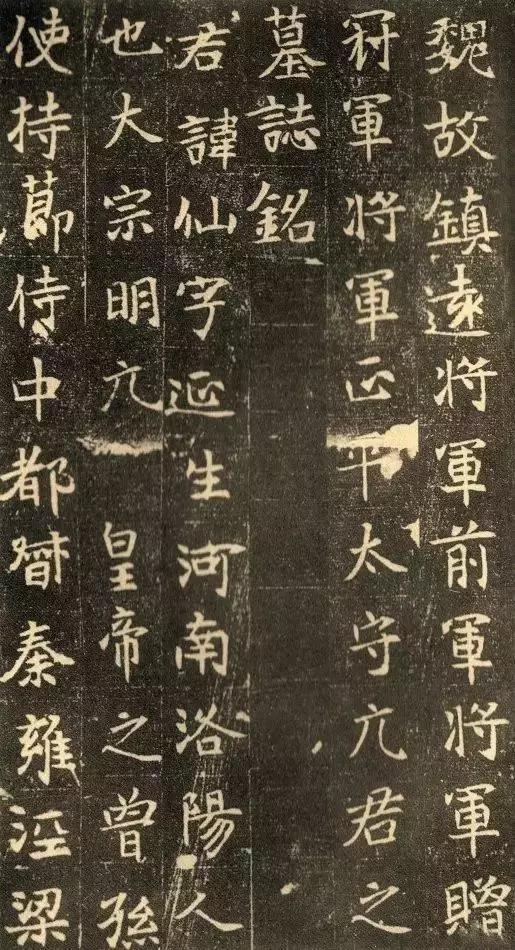 魏故鎮遠将軍前軍将軍贈
冠軍将軍正平太守元君之
墓誌銘
君諱仙字延生河南洛陽人
也大宗明元 皇帝之曾孫
使持節侍中都督秦雍涇梁